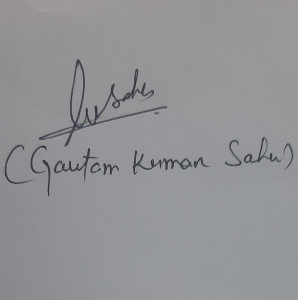 (Gautam Kumar Sahu)